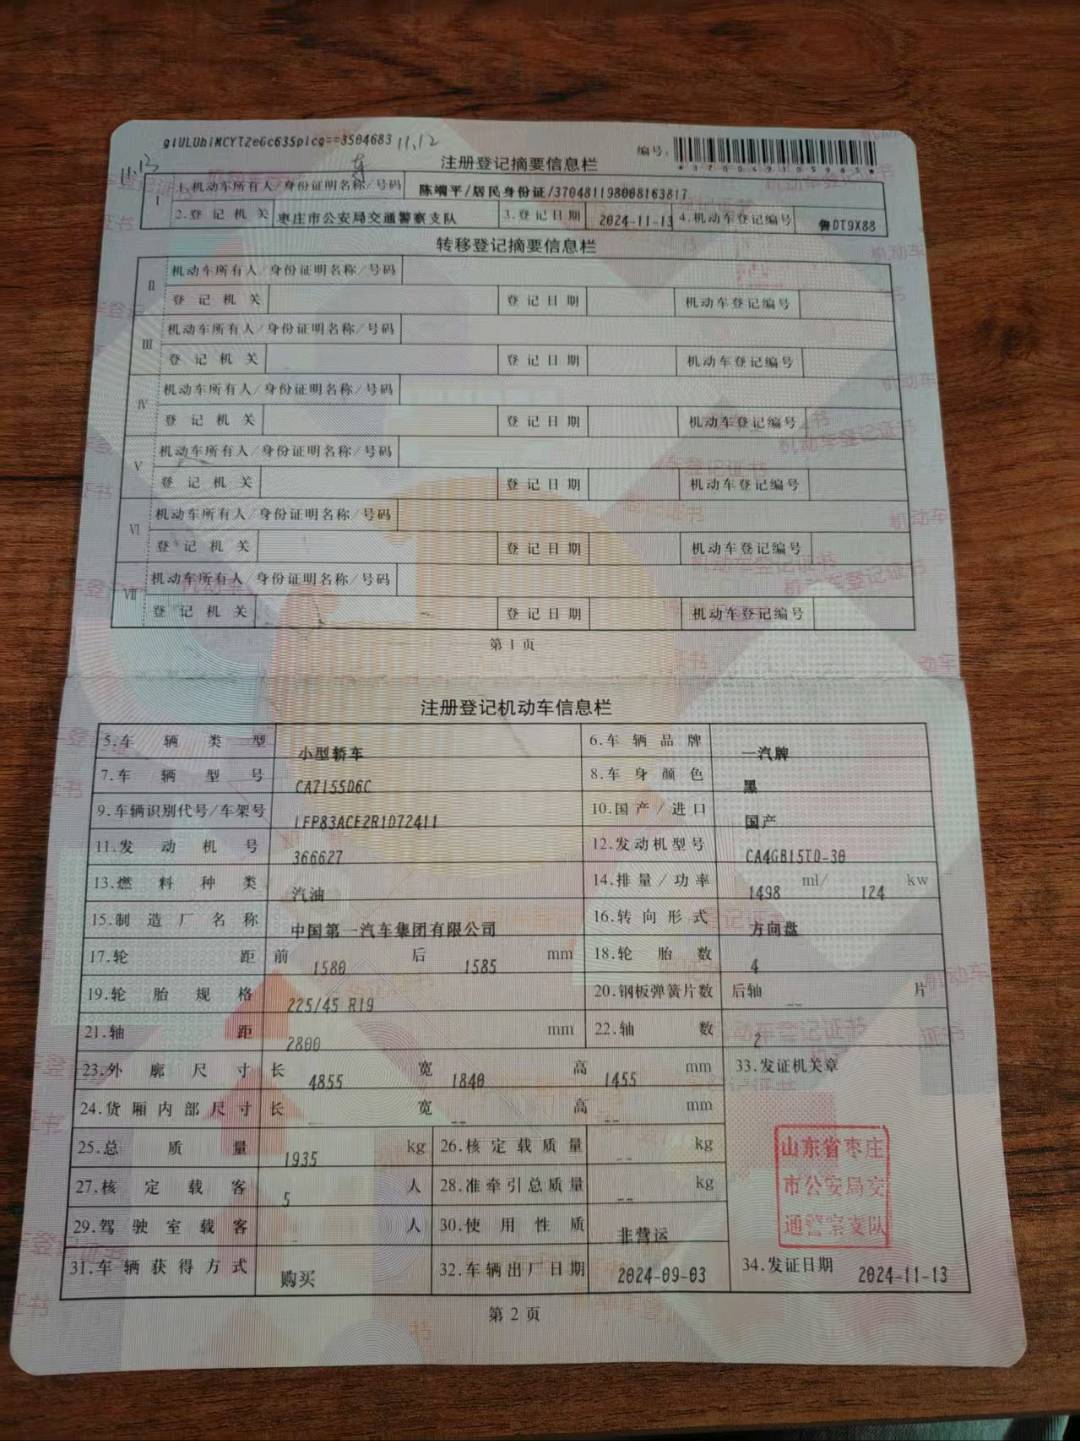 11.12
11.13
编号:
注册登记摘要信息栏
I
1.机动车所有人/身份证明名称/号码 陈端平/居民身份证/370481198008163817
2.登记机关 枣庄市公安局交通警察支队 3.登记日期 2024-11-13 4.机动车登记编号 鲁DT9X88
转移登记摘要信息栏
II 机动车所有人/身份证明名称/号码
登记机关 登记日期 机动车登记编号
III 机动车所有人/身份证明名称/号码
登记机关 登记日期 机动车登记编号
IV 机动车所有人/身份证明名称/号码
登记机关 登记日期 机动车登记编号
V 机动车所有人/身份证明名称/号码
登记机关 登记日期 机动车登记编号
VI 机动车所有人/身份证明名称/号码
登记机关 登记日期 机动车登记编号
VII 机动车所有人/身份证明名称/号码
登记机关 登记日期 机动车登记编号
第 1 页
注册登记机动车信息栏
5.车辆类型 小型轿车 6.车辆品牌 一汽牌
7.车辆型号 CA7155D6C 8.车身颜色 黑
9.车辆识别代号/车架号 LFP83ACE2R1D72411 10.国产/进口 国产
11.发动机号 366627 12.发动机型号 CA4GB15TD-30
13.燃料种类 汽油 14.排量/功率 1498 ml/ 124 kw
15.制造厂名称 中国第一汽车集团有限公司 16.转向形式 方向盘
17.轮距 前 1580 后 1585 mm 18.轮胎数 4
19.轮胎规格 225/45 R19 20.钢板弹簧片数 后轴 -- 片
21.轴距 2800 mm 22.轴数 2
23.外廓尺寸 长 4855 宽 1840 高 1455 mm 33.发证机关章
24.货厢内部尺寸 长 -- 宽 -- 高 -- mm
25.总质量 1935 kg 26.核定载质量 -- kg
27.核定载客 5 人 28.准牵引总质量 -- kg
29.驾驶室载客 -- 人 30.使用性质 非营运
山东省枣庄
市公安局交
通警察支队
31.车辆获得方式 购买 32.车辆出厂日期 2024-09-03 34.发证日期 2024-11-13
第 2 页